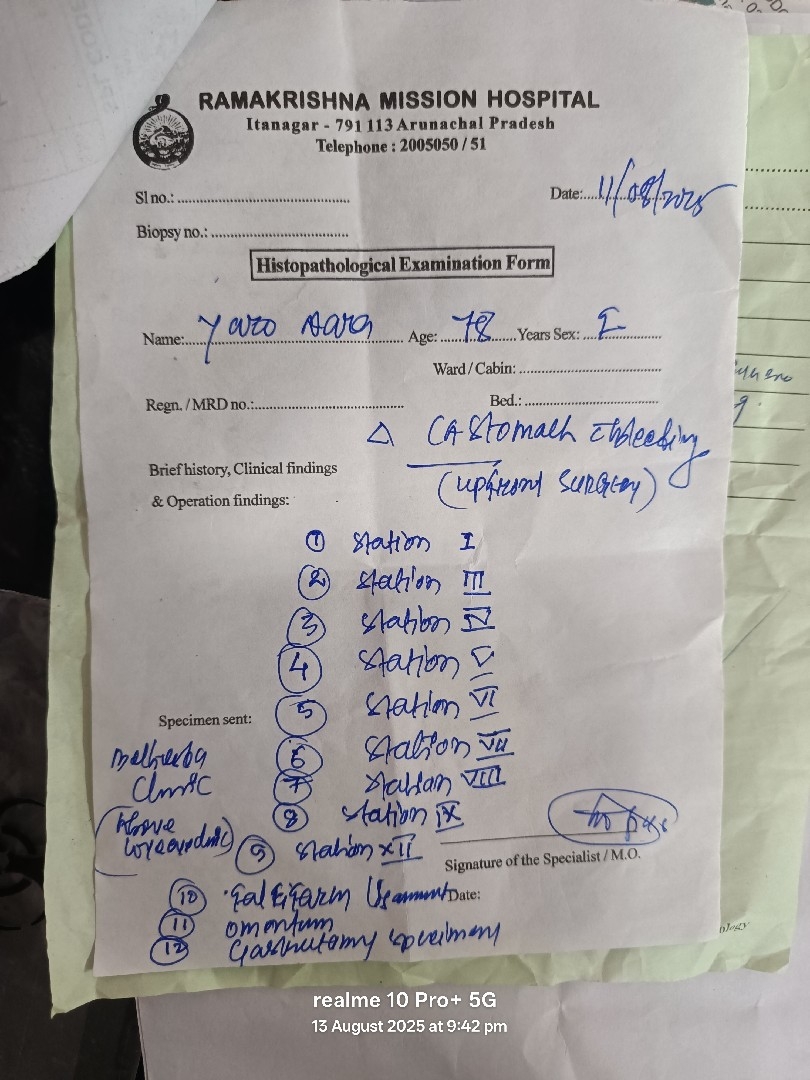 RAMAKRISHNA MISSION HOSPITAL
Itanagar - 791 113 Arunachal Pradesh
Telephone : 2005050 / 51
Sl no.:
Date: 11/08/2025
Biopsy no.:
Histopathological Examination Form
Name: Age: 78 Years Sex:
Ward / Cabin:
Regn. / MRD no.: Bed.:
△ CA Stomach bleeding
Brief history, Clinical findings
(upfront surgery)
& Operation findings:
① Station I
② Station III
③ Station IV
④ Station V
⑤ Station VI
Specimen sent:
⑥ Station VII
Clinic
⑦ Station VIII
⑧ Station IX
(Above
⑨ Station XII
Signature of the Specialist / M.O.
⑩ Falciform ligament
Date:
⑪ omentum
⑫ Gastrectomy specimen
realme 10 Pro+ 5G
13 August 2025 at 9:42 pm